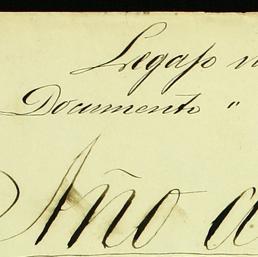 Legajo n
Documento "
Año d